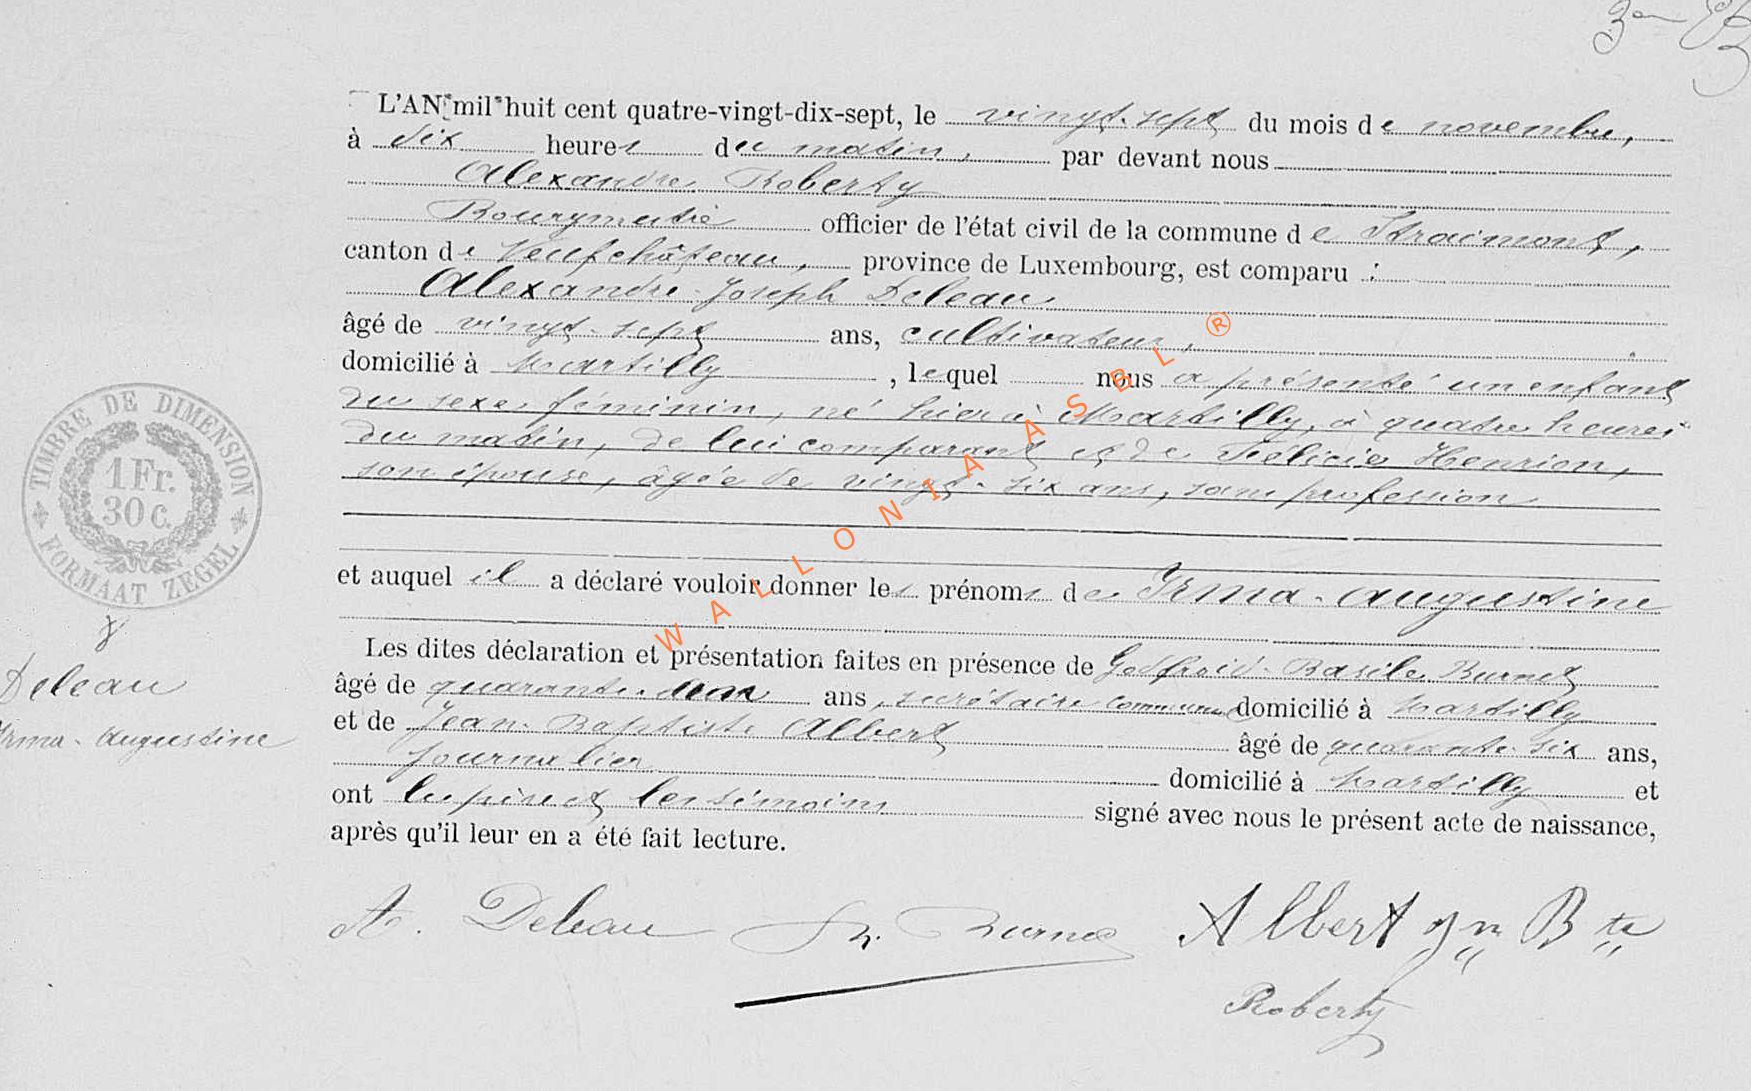 L'AN mil huit cent quatre-vingt-dix-sept, le vingt-sept du mois de novembre,
à dix heures du matin, par devant nous
Alexandre Roberty
Bourgmestre officier de l'état civil de la commune de Straimont,
canton de Neufchâteau, province de Luxembourg, est comparu :
Alexandre-Joseph Deleau,
âgé de vingt-sept ans, cultivateur,
domicilié à Martilly, lequel nous a présenté un enfant
du sexe féminin, né hier à Martilly, à quatre heures
du matin, de lui comparant et de Félicie Henrion,
son épouse, âgée de vingt-six ans, sans profession
et auquel il a déclaré vouloir donner les prénoms de Irma-Augustine
Les dites déclaration et présentation faites en présence de Godfroid-Basile Burnet
âgé de quarante-deux ans, secrétaire communal domicilié à Martilly
et de Jean-Baptiste Albert âgé de quarante-six ans,
journalier domicilié à Martilly et
ont le père et les témoins signé avec nous le présent acte de naissance,
après qu'il leur en a été fait lecture.
A. Deleau Burnet Albert Jn Bte
Roberty
TIMBRE DE DIMENSION
1 Fr.
30 C.
FORMAAT ZEGEL
Deleau
Irma-Augustine
WALLONIA ASBL ®